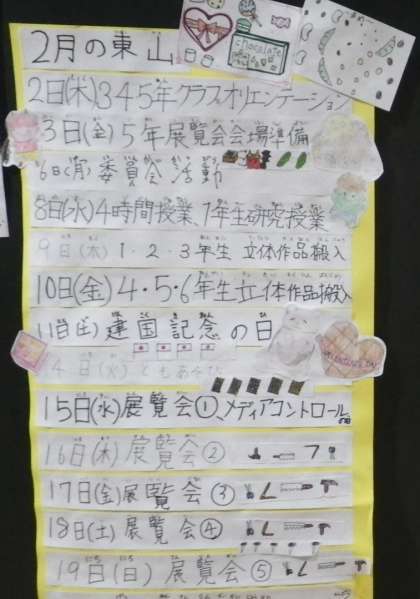 2月の東山
chocolate
2日(木)345年クラブオリエンテーション
3日(金)5年展覧会会場準備
6日(月)委員会活動
8日(水)4時間授業、1年生研究授業
9日(木)1・2・3年生 立体作品搬入
10日(金)4・5・6年生立体作品搬入
11日(土)建国記念の日
14日(火)ともあそび
15日(水)展覧会①、メディアコントロール
16日(木)展覧会②
17日(金)展覧会③
18日(土)展覧会④
19日(日)展覧会⑤